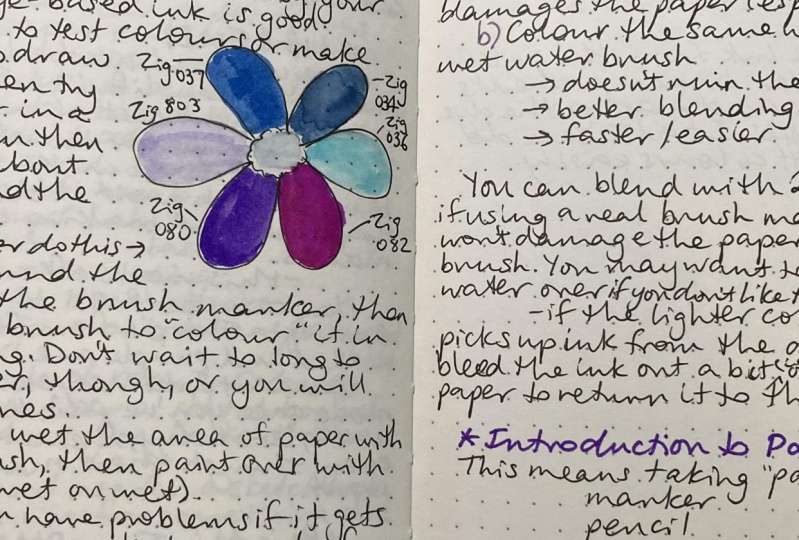 -based ink is good
to test colours or make
draw
en try
in a
then
about
nd the
er do this →
und the
the brush marker, then
brush to "colour" it in
ng. Don't wait to long to
er, though, or you will
nes.
wet the area of paper with
ush, then paint over with
wet on wet).
have problems if it gets
Zig 037
Zig 034
Zig 803
Zig 036
Zig 080
Zig 082
damages the paper (esp
b) Colour the same
wet water brush
→ doesn't ruin the
→ better blending
→ faster/easier
You can blend with a
if using a real brush ma
won't damage the paper
brush. You may want to
water over if you don't like t
-if the lighter co
picks up ink from the
bleed the ink out a bit
paper to return it to th
*Introduction to Pa
This means taking "pa
marker
pencil